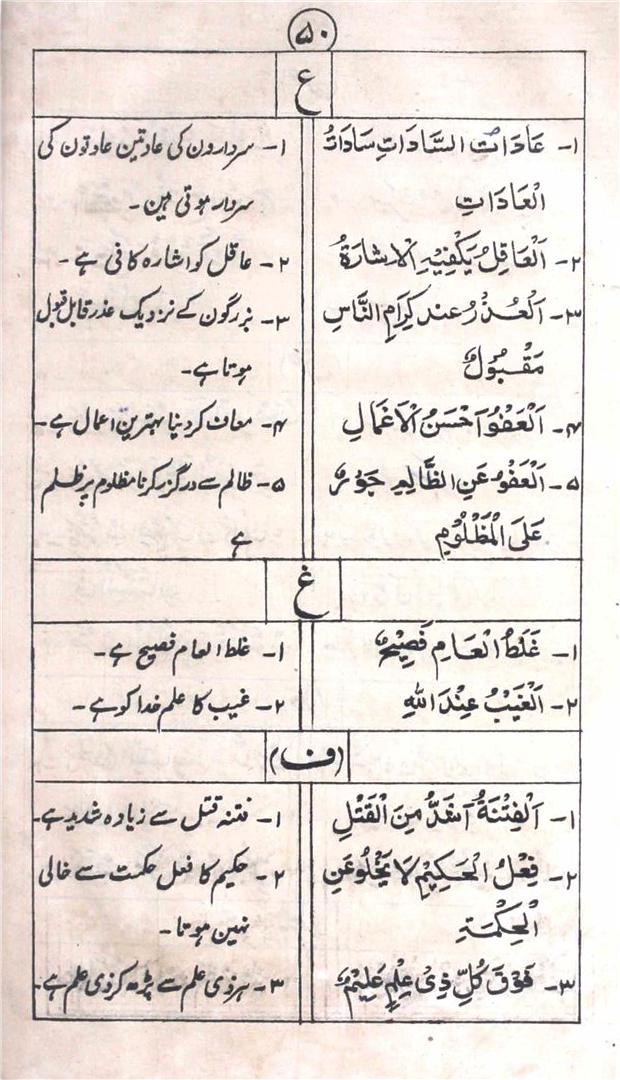 ۵۰
ع
۱- عَادَاتُ السَّادَاتِ سَادَاتُ
الْعَادَاتِ
۱- سردارون کی عادتین عادتون کی
سردار ہوتی ہین۔
۲- اَلْعَاقِلُ یَکْفِیْہِ الْاِشَارَۃُ
۲- عاقل کو اشارہ کافی ہے۔
۳- اَلْعُذْرُ عِنْدَ کِرَامِ النَّاسِ
مَقْبُوْلٌ
۳- بزرگون کے نزدیک عذر قابل قبول
ہوتا ہے۔
۴- اَلْعَفْوُ اَحْسَنُ الْاَعْمَالِ
۴- معاف کر دینا بہترین اعمال ہے۔
۵- اَلْعَفْوُ عَنِ الظَّالِمِ جَوْرٌ
عَلَی الْمَظْلُوْمِ
۵- ظالم سے درگزر کرنا مظلوم پر ظلم
ہے
غ
۱- غَلَطُ الْعَامِ فَصِیْحٌ
۱- غلط العام فصیح ہے۔
۲- اَلْغَیْبُ عِنْدَ اللّٰہِ
۲- غیب کا علم خدا کو ہے۔
(ف)
۱- اَلْفِتْنَۃُ اَشَدُّ مِنَ الْقَتْلِ
۱- فتنہ قتل سے زیادہ شدید ہے۔
۲- فِعْلُ الْحَکِیْمِ لَا یَخْلُوْ عَنِ
الْحِکْمَۃِ
۲- حکیم کا فعل حکمت سے خالی
نہین ہوتا۔
۳- فَوْقَ کُلِّ ذِیْ عِلْمٍ عَلِیْمٌ
۳- ہر ذی علم سے بڑھ کر ذی علم ہے۔